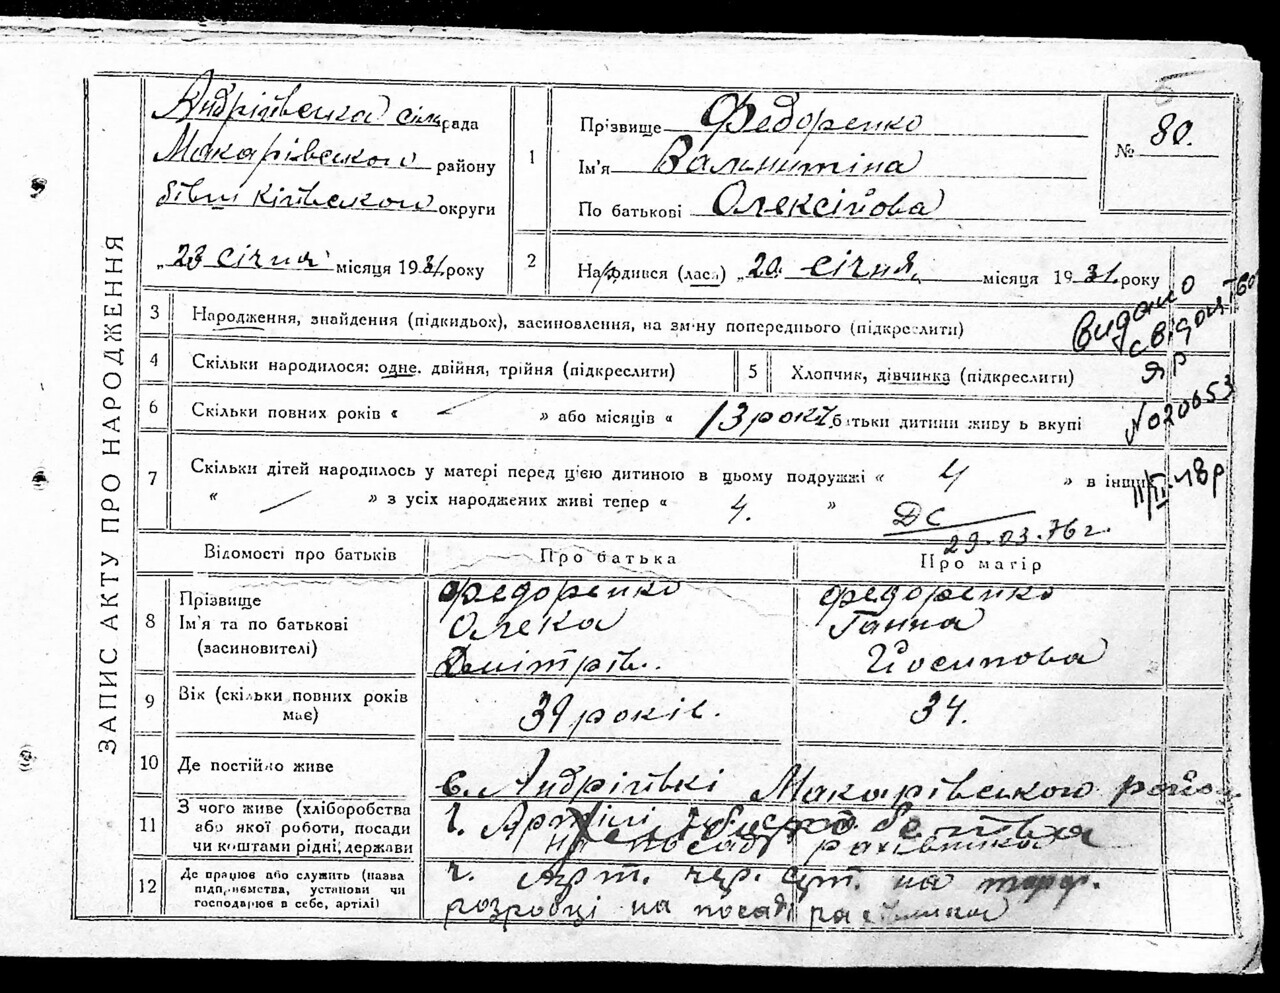 ЗАПИС АКТУ ПРО НАРОДЖЕННЯ
Андріївська сільрада
Макарівського району
бівш Київської округи
„23 січня місяця 1931 року
1
Прізвище Федоренко
Ім'я Валинтина
По батькові Олексійова
№ 80.
2
Народився (лась) „20. січня, місяця 1931. року
3 Народження, знайдення (підкидьок), засиновлення, на зміну попереднього (підкреслити)
4 Скільки народилося: одне. двійня, трійня (підкреслити)
5 Хлопчик, дівчинка (підкреслити)
6 Скільки повних років « » або місяців « 13 років батьки дитини живуть вкупі
7 Скільки дітей народилось у матері перед цією дитиною в цьому подружжі « 4 » в інших
« » з усіх народжених живі тепер « 4. »
ДС
29.03.76 г.
Видано
свідоцтво
ЯР
№020653
11/II-48р
Відомості про батьків
Про батька
Про матір
8 Прізвище
Ім'я та по батькові
(засиновителі)
Федоренко
Олекса
Дмітрів.
Федоренко
Ганна
Йосипова
9 Вік (скільки повних років
має)
39 років.
34.
10 Де постійно живе
с. Андріївкі Макарівського район
11 З чого живе (хліборобства
або якої роботи, посади
чи коштами рідні, держави
Артілі
12 Де працює або служить (назва
підприємства, установи чи
господарює в себе, артілі)
Арт. чер. на торф.
розробці на посаді